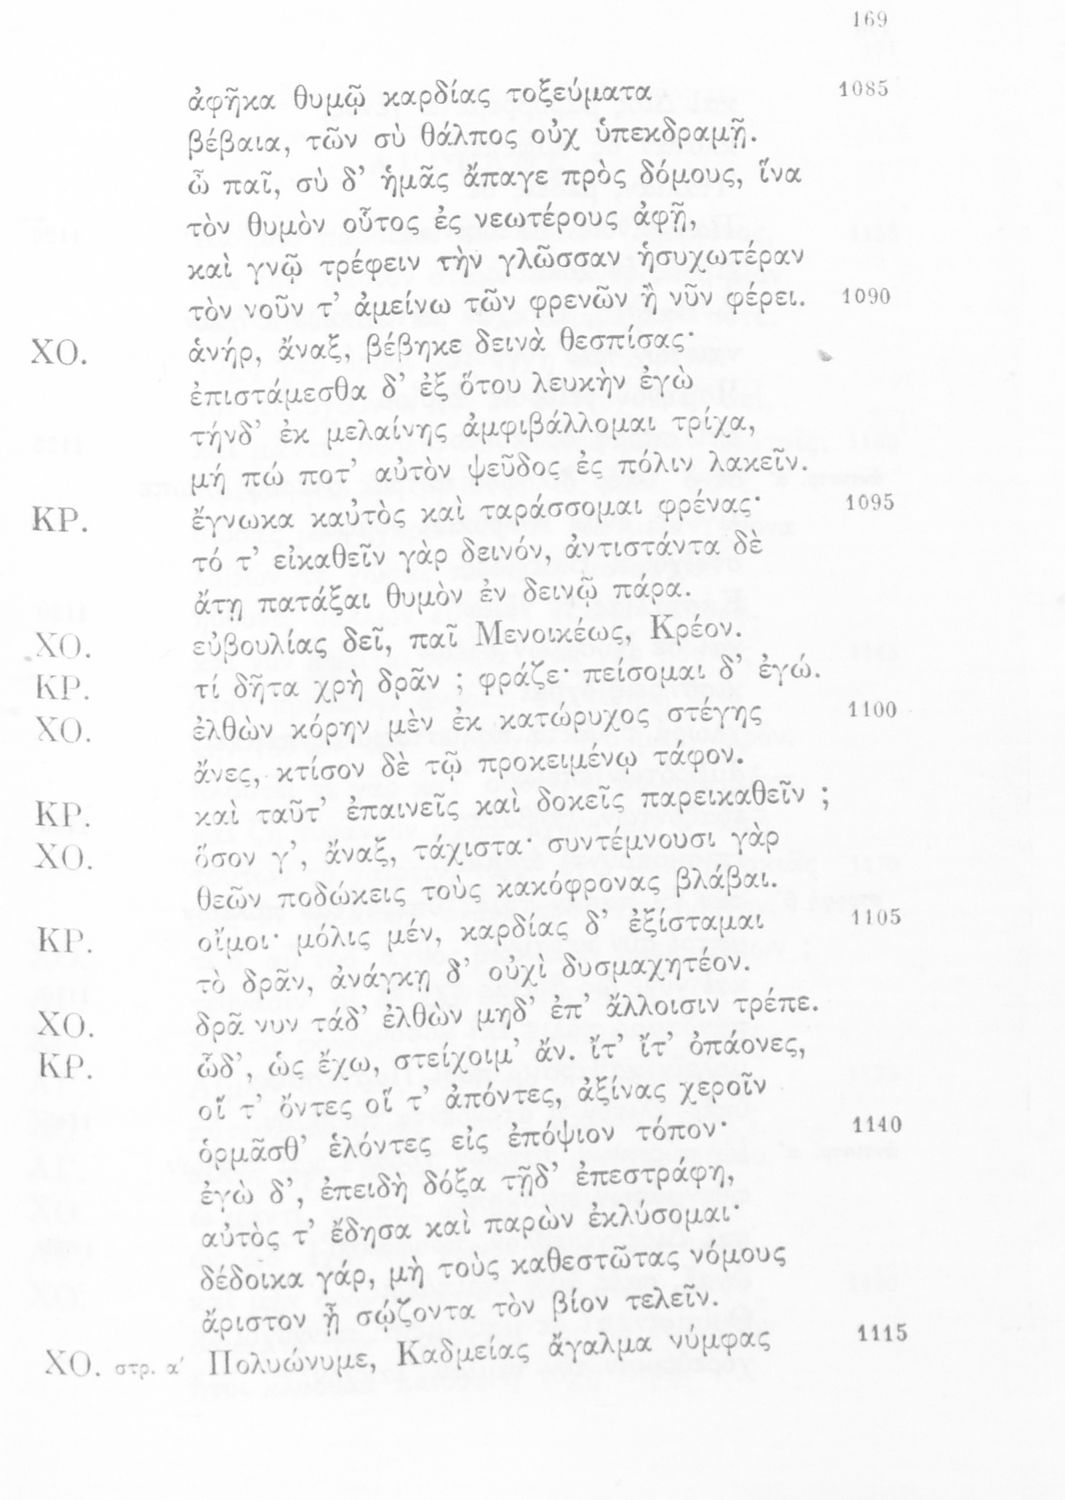 169
ἀφῆκα θυμῷ καρδίας τοξεύματα 1085
βέβαια, τῶν σὺ θάλπος οὐχ ὑπεκδραμῇ.
ὦ παῖ, σὺ δ' ἡμᾶς ἄπαγε πρὸς δόμους, ἵνα
τὸν θυμὸν οὗτος ἐς νεωτέρους ἀφῇ,
καὶ γνῷ τρέφειν τὴν γλῶσσαν ἡσυχωτέραν
τὸν νοῦν τ' ἀμείνω τῶν φρενῶν ἢ νῦν φέρει. 1090
ΧΟ. ἁνήρ, ἄναξ, βέβηκε δεινὰ θεσπίσας·
ἐπιστάμεσθα δ' ἐξ ὅτου λευκὴν ἐγὼ
τήνδ' ἐκ μελαίνης ἀμφιβάλλομαι τρίχα,
μή πώ ποτ' αὐτὸν ψεῦδος ἐς πόλιν λακεῖν.
ΚΡ. ἔγνωκα καὐτὸς καὶ ταράσσομαι φρένας· 1095
τό τ' εἰκαθεῖν γὰρ δεινόν, ἀντιστάντα δὲ
ἄτῃ πατάξαι θυμὸν ἐν δεινῷ πάρα.
ΧΟ. εὐβουλίας δεῖ, παῖ Μενοικέως, Κρέον.
ΚΡ. τί δῆτα χρὴ δρᾶν ; φράζε· πείσομαι δ' ἐγώ.
ΧΟ. ἐλθὼν κόρην μὲν ἐκ κατώρυχος στέγης 1100
ἄνες, κτίσον δὲ τῷ προκειμένῳ τάφον.
ΚΡ. καὶ ταῦτ' ἐπαινεῖς καὶ δοκεῖς παρεικαθεῖν ;
ΧΟ. ὅσον γ', ἄναξ, τάχιστα· συντέμνουσι γὰρ
θεῶν ποδώκεις τοὺς κακόφρονας βλάβαι.
ΚΡ. οἴμοι· μόλις μέν, καρδίας δ' ἐξίσταμαι 1105
τὸ δρᾶν, ἀνάγκῃ δ' οὐχὶ δυσμαχητέον.
ΧΟ. δρᾶ νυν τάδ' ἐλθὼν μηδ' ἐπ' ἄλλοισιν τρέπε.
ΚΡ. ὧδ', ὡς ἔχω, στείχοιμ' ἄν. ἴτ' ἴτ' ὀπάονες,
οἵ τ' ὄντες οἵ τ' ἀπόντες, ἀξίνας χεροῖν
ὁρμᾶσθ' ἑλόντες εἰς ἐπόψιον τόπον· 1140
ἐγὼ δ', ἐπειδὴ δόξα τῇδ' ἐπεστράφη,
αὐτὸς τ' ἔδησα καὶ παρὼν ἐκλύσομαι·
δέδοικα γάρ, μὴ τοὺς καθεστῶτας νόμους
ἄριστον ᾖ σῴζοντα τὸν βίον τελεῖν.
ΧΟ. στρ. α′ Πολυώνυμε, Καδμείας ἄγαλμα νύμφας 1115